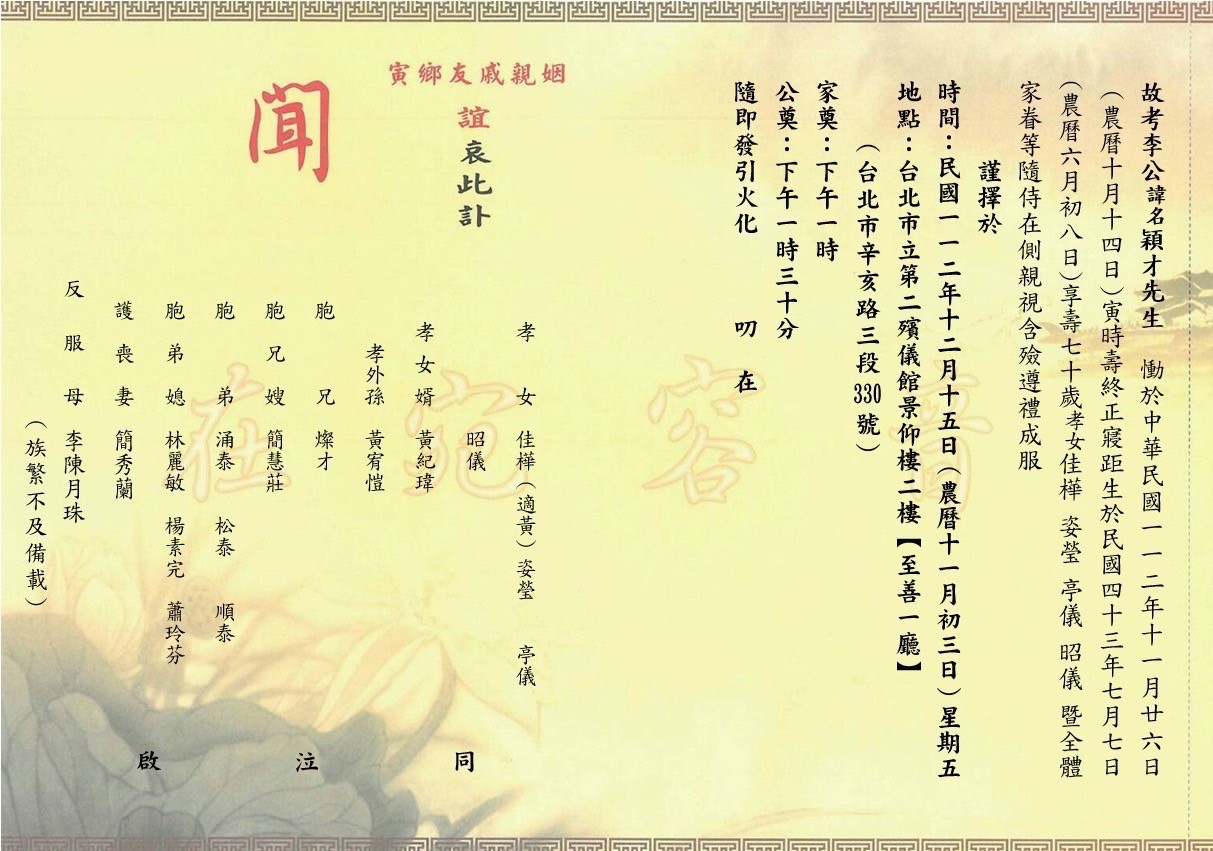 故考李公諱名穎才先生 慟於中華民國一一二年十一月廿六日
（農曆十月十四日）寅時壽終正寢距生於民國四十三年七月七日
（農曆六月初八日）享壽七十歲孝女佳樺 姿瑩 亭儀 昭儀 暨全體
家眷等隨侍在側親視含殮遵禮成服
謹擇於
時間：民國一一二年十二月十五日（農曆十一月初三日）星期五
地點：台北市立第二殯儀館景仰樓二樓【至善一廳】
（台北市辛亥路三段330號）
家奠：下午一時
公奠：下午一時三十分
隨即發引火化 叨 在
姻親戚友鄉寅
誼哀此訃
聞
孝女 佳樺（適黃）姿瑩 亭儀
昭儀
孝女婿 黃紀瑋
孝外孫 黃宥愷
胞兄 燦才
胞兄嫂 簡慧莊
胞弟 涌泰 松泰 順泰
胞弟媳 林麗敏 楊素完 蕭玲芬
護喪妻 簡秀蘭
反服母 李陳月珠
（族繁不及備載）
同 泣 啟
音容宛在